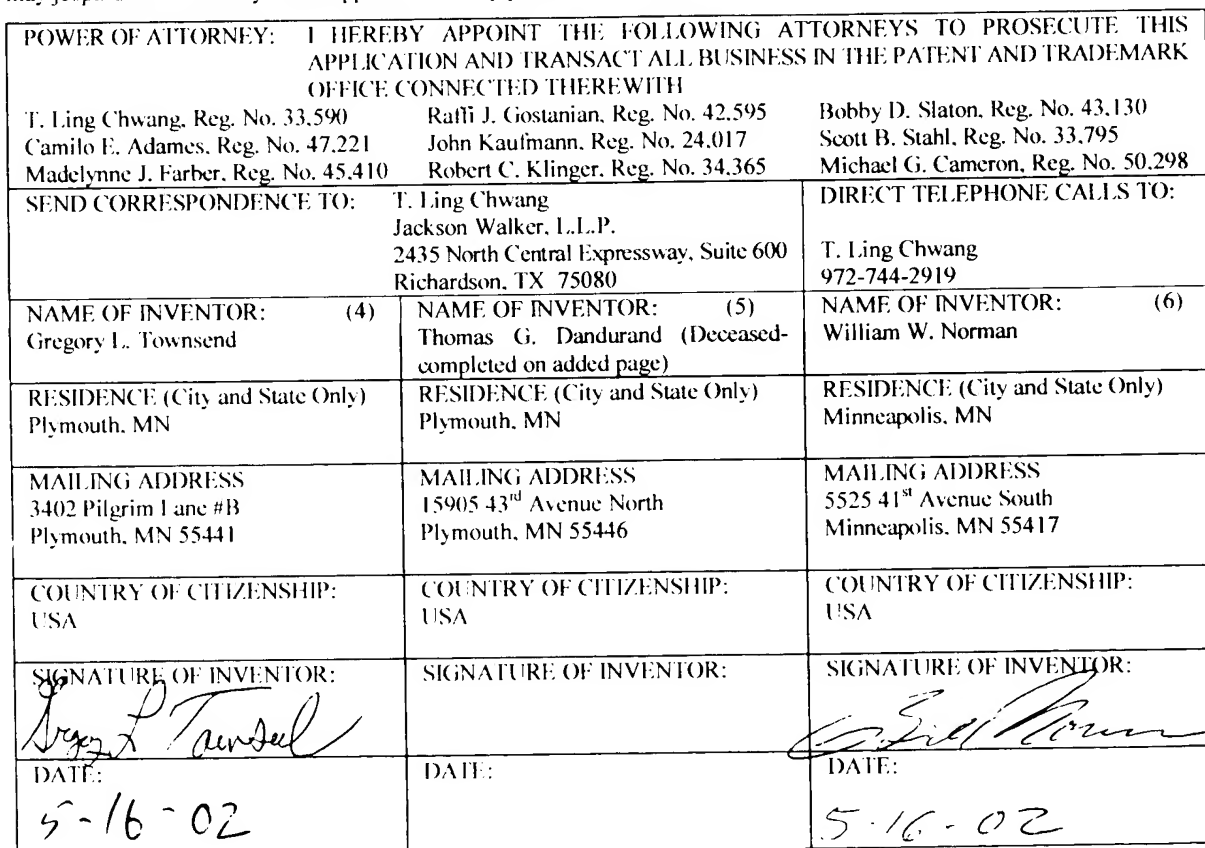 POWER OF ATTORNEY: I HEREBY APPOINT THE FOLLOWING ATTORNEYS TO PROSECUTE THIS
APPLICATION AND TRANSACT ALL BUSINESS IN THE PATENT AND TRADEMARK
OFFICE CONNECTED THEREWITH
T. Ling Chwang, Reg. No. 33,590
Camilo E. Adames, Reg. No. 47,221
Madelynne J. Farber, Reg. No. 45,410
Raffi J. Gostanian, Reg. No. 42,595
John Kaufmann, Reg. No. 24,017
Robert C. Klinger, Reg. No. 34,365
Bobby D. Slaton, Reg. No. 43,130
Scott B. Stahl, Reg. No. 33,795
Michael G. Cameron, Reg. No. 50,298
SEND CORRESPONDENCE TO: T. Ling Chwang
Jackson Walker, L.L.P.
2435 North Central Expressway, Suite 600
Richardson, TX 75080
DIRECT TELEPHONE CALLS TO:
T. Ling Chwang
972-744-2919
NAME OF INVENTOR: (4)
Gregory L. Townsend
NAME OF INVENTOR: (5)
Thomas G. Dandurand (Deceased-
completed on added page)
NAME OF INVENTOR: (6)
William W. Norman
RESIDENCE (City and State Only)
Plymouth, MN
RESIDENCE (City and State Only)
Plymouth, MN
RESIDENCE (City and State Only)
Minneapolis, MN
MAILING ADDRESS
3402 Pilgrim Lane #B
Plymouth, MN 55441
MAILING ADDRESS
15905 43rd Avenue North
Plymouth, MN 55446
MAILING ADDRESS
5525 41st Avenue South
Minneapolis, MN 55417
COUNTRY OF CITIZENSHIP:
USA
COUNTRY OF CITIZENSHIP:
USA
COUNTRY OF CITIZENSHIP:
USA
SIGNATURE OF INVENTOR:
SIGNATURE OF INVENTOR:
SIGNATURE OF INVENTOR:
DATE:
5-16-02
DATE:
DATE:
5-16-02